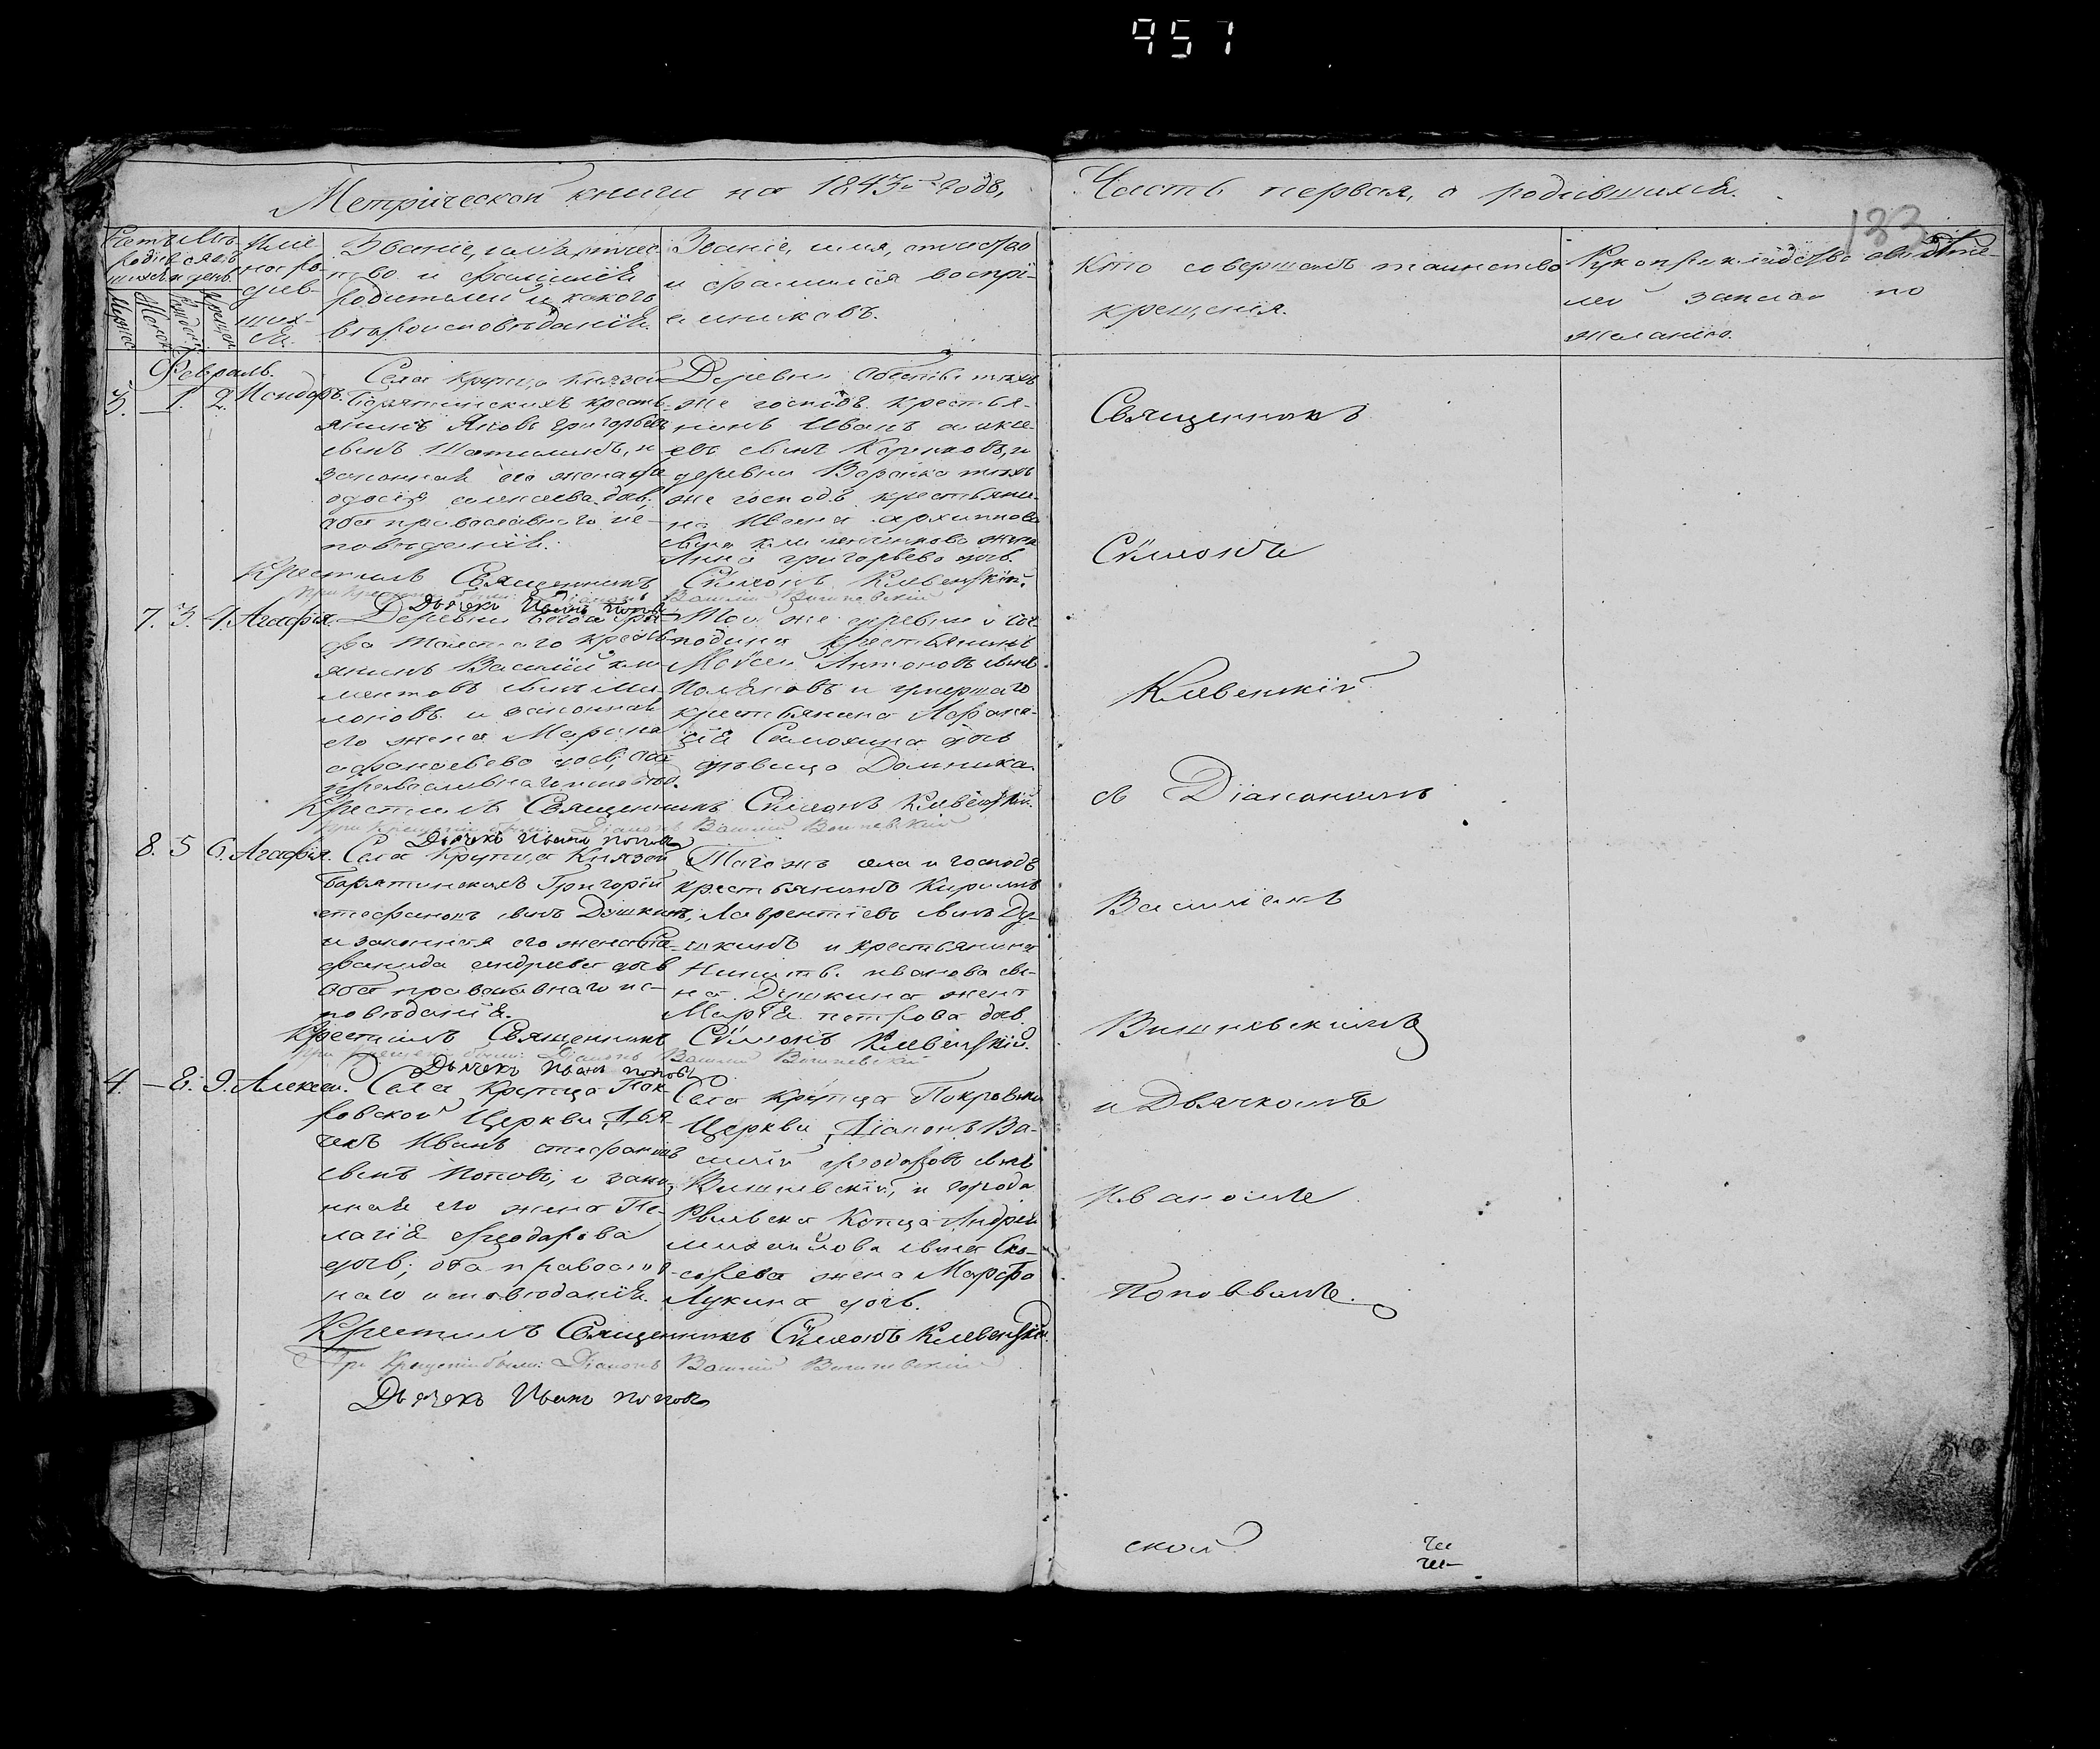 957
Метрической книги на 1843й годъ,
Часть первая, о родившихся.
133
Счетъ
родив
шихся
Мѣ-
сяцъ
и день.
Мужес.
Женск.
Рожденія
Крещен.
Име
на ро-
див-
ших-
ся.
Званіе, имя, отчес
тво и фамилія
родителей и какого
вѣроисповѣданія.
Званіе, имя, отчество
и фамилія воспрі-
емниковъ.
Кто совершалъ таинство
крещенія.
Рукоприкладство свидѣте-
лей записи по
желанію.
Февраль.
3. 1. 2.
Села Крупца Князей
Барятинскихъ кресть-
янинъ Яковъ Григорьевъ
сынъ и
законная его жена Фе
одосія дочь,
оба православнаго ис-
повѣданія.
Деревни тѣхъ
же господъ крестья-
нинъ Иванъ
евъ сынъ и
деревни тѣхъ
же господъ крестьяни-
на Ивана Архипова
сына жена
Анна Григорьева дочь.
Крестилъ Священникъ Сѵмеонъ Клевенскій.
При крещеніи были: Діаконъ Василій Вишневскій
Дьячекъ Иванъ Поповъ
7. 3. 4. Агафія.
Деревни
кресть-
янинъ Василій Кли-
ментовъ сынъ
и законная
его жена Марина
Афанасьева дочь, оба
православнаго исповѣд.
Той же деревни и гос-
подина крестьянинъ
Моѵсей Антоновъ сынъ
Поляковъ и умершаго
крестьянина Афана-
сія Самохина дочь
дѣвица Домника.
Крестилъ Священникъ Сѵмеонъ Клевенскій.
при крещеніи были: Діаконъ Василій Вишневскій
Дьячекъ Иванъ Поповъ
8. 5 6. Агафія.
Села Крупца Князей
Барятинскихъ Григорій
Стефановъ сынъ Душкинъ,
и законная его жена
Андреева дочь
оба православнаго ис-
повѣданія.
Тогожъ села и господъ
крестьянинъ Кирилъ
Лаврентіевъ сынъ Ду-
шкинъ и крестьянина
Никиты Иванова сы-
на Душкина жена
Марѳа Петрова дочь
Крестилъ Священникъ Сѵмеонъ Клевенскій.
при крещеніи были: Діаконъ Василій Вишневскій
Дьячекъ Иванъ Поповъ
4. — 8. 9. Алексей.
Села Крупца Пок-
ровской Церкви Дья-
чекъ Иванъ Стефановъ
сынъ Поповъ, и закон-
ная его жена Пе-
лагія Феодорова
дочь; оба православ-
наго исповѣданія.
Села Крупца Покровской
Церкви Діаконъ Ва-
силій Феодоровъ сынъ
Вишневскій, и города
Рыльска Купца Андрея
Михайлова сына
жена Марфа
Лукина дочь.
Крестилъ Священникъ Сѵмеонъ Клевенскій.
При крещеніи были: Діаконъ Василій Вишневскій
Дьячекъ Иванъ Поповъ
Священникъ
Сѵмеонъ
Клевенскій
съ Діакономъ
Василіемъ
Вишневскимъ
и Дьячкомъ
Иваномъ
Поповымъ.
ской